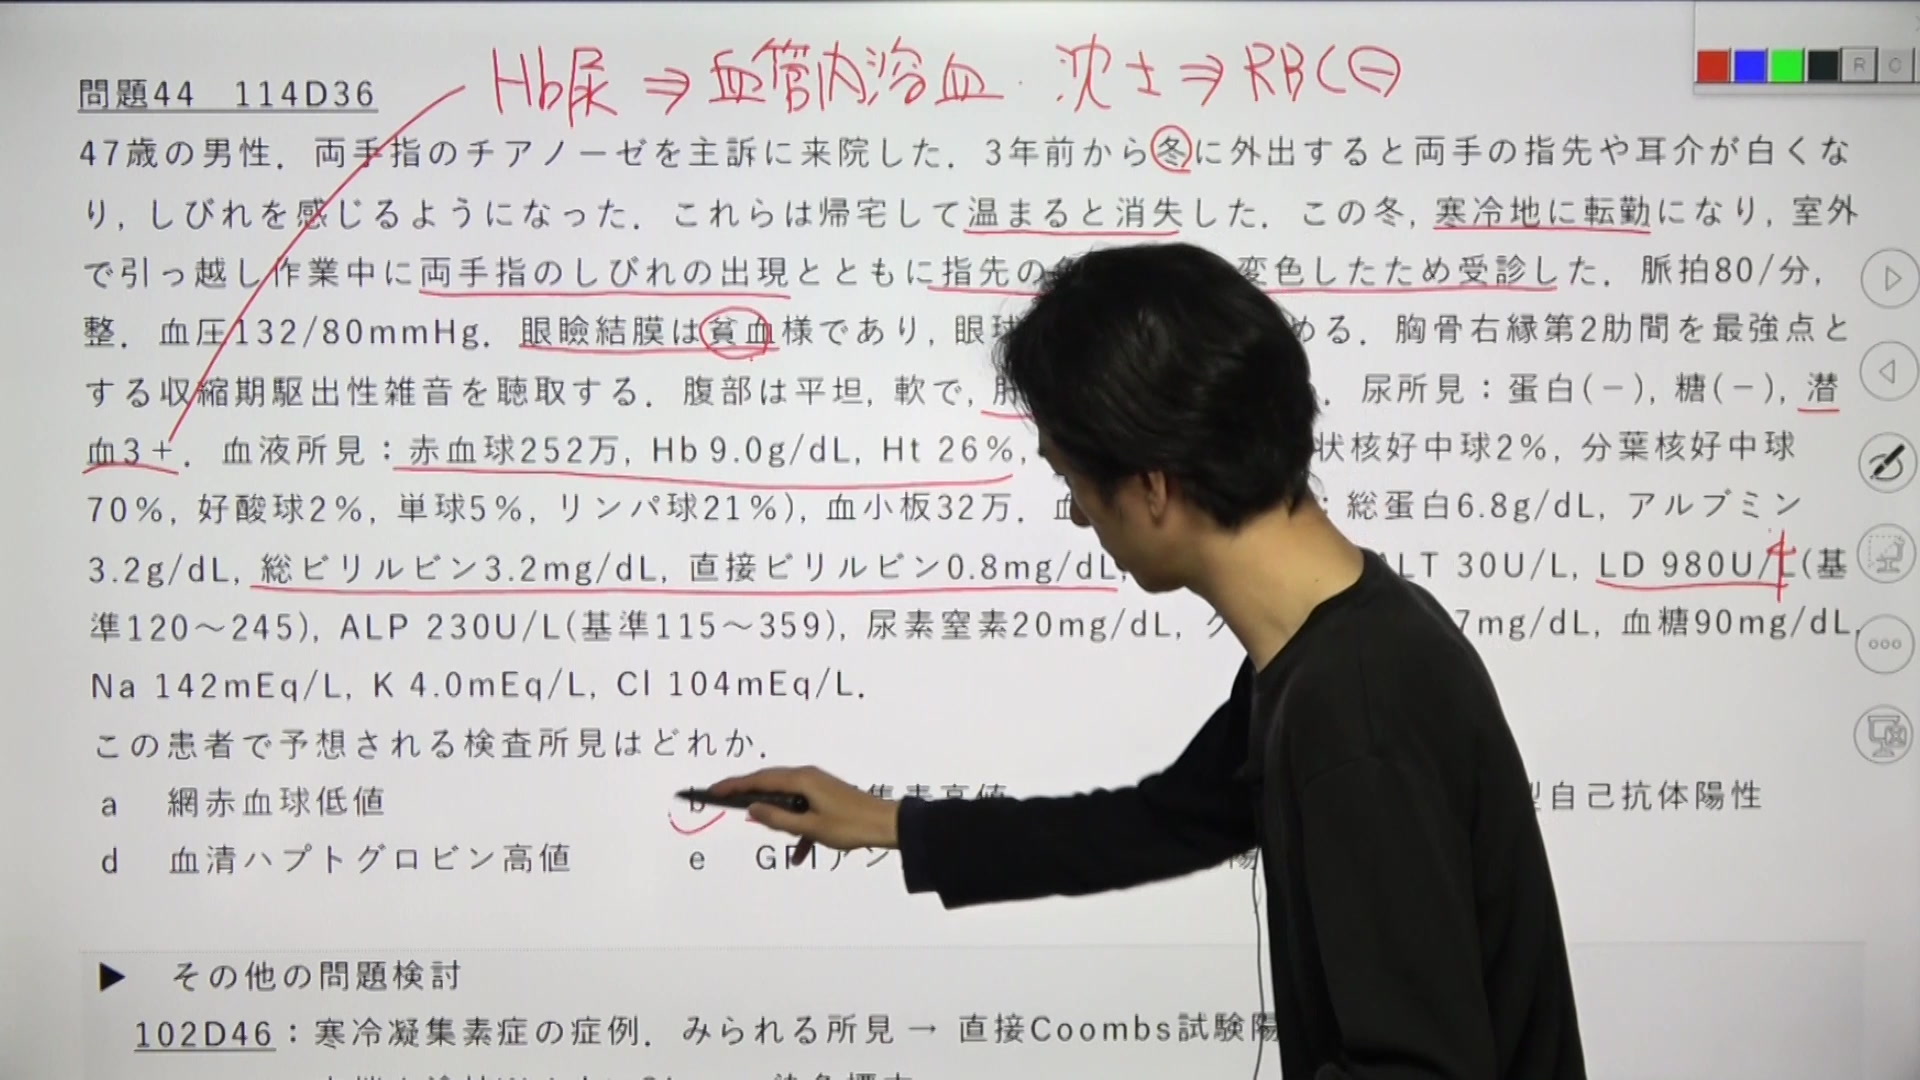 Hb尿 ⇒ 血管内溶血 . 沈士 ⇒ RBC⊖
R C
問題44 114D36
47歳の男性．両手指のチアノーゼを主訴に来院した．3年前から冬に外出すると両手の指先や耳介が白くな
り，しびれを感じるようになった．これらは帰宅して温まると消失した．この冬，寒冷地に転勤になり，室外
で引っ越し作業中に両手指のしびれの出現とともに指先の 変色したため受診した．脈拍80/分，
整．血圧132/80mmHg．眼瞼結膜は貧血様であり，眼球 める．胸骨右縁第2肋間を最強点と
する収縮期駆出性雑音を聴取する．腹部は平坦，軟で， ．尿所見：蛋白(－)，糖(－)，潜
血3＋．血液所見：赤血球252万，Hb 9.0g/dL，Ht 26％， 状核好中球2％，分葉核好中球
70％，好酸球2％，単球5％，リンパ球21％)，血小板32万． ：総蛋白6.8g/dL，アルブミン
3.2g/dL，総ビリルビン3.2mg/dL，直接ビリルビン0.8mg/dL， ALT 30U/L，LD 980U/L(基
準120～245)，ALP 230U/L(基準115～359)，尿素窒素20mg/dL，ク 7mg/dL，血糖90mg/dL，
Na 142mEq/L，K 4.0mEq/L，Cl 104mEq/L．
この患者で予想される検査所見はどれか．
a 網赤血球低値 b 集素高値 型自己抗体陽性
d 血清ハプトグロビン高値 e GPIアン
▶ その他の問題検討
102D46：寒冷凝集素症の症例．みられる所見 → 直接Coombs試験陽